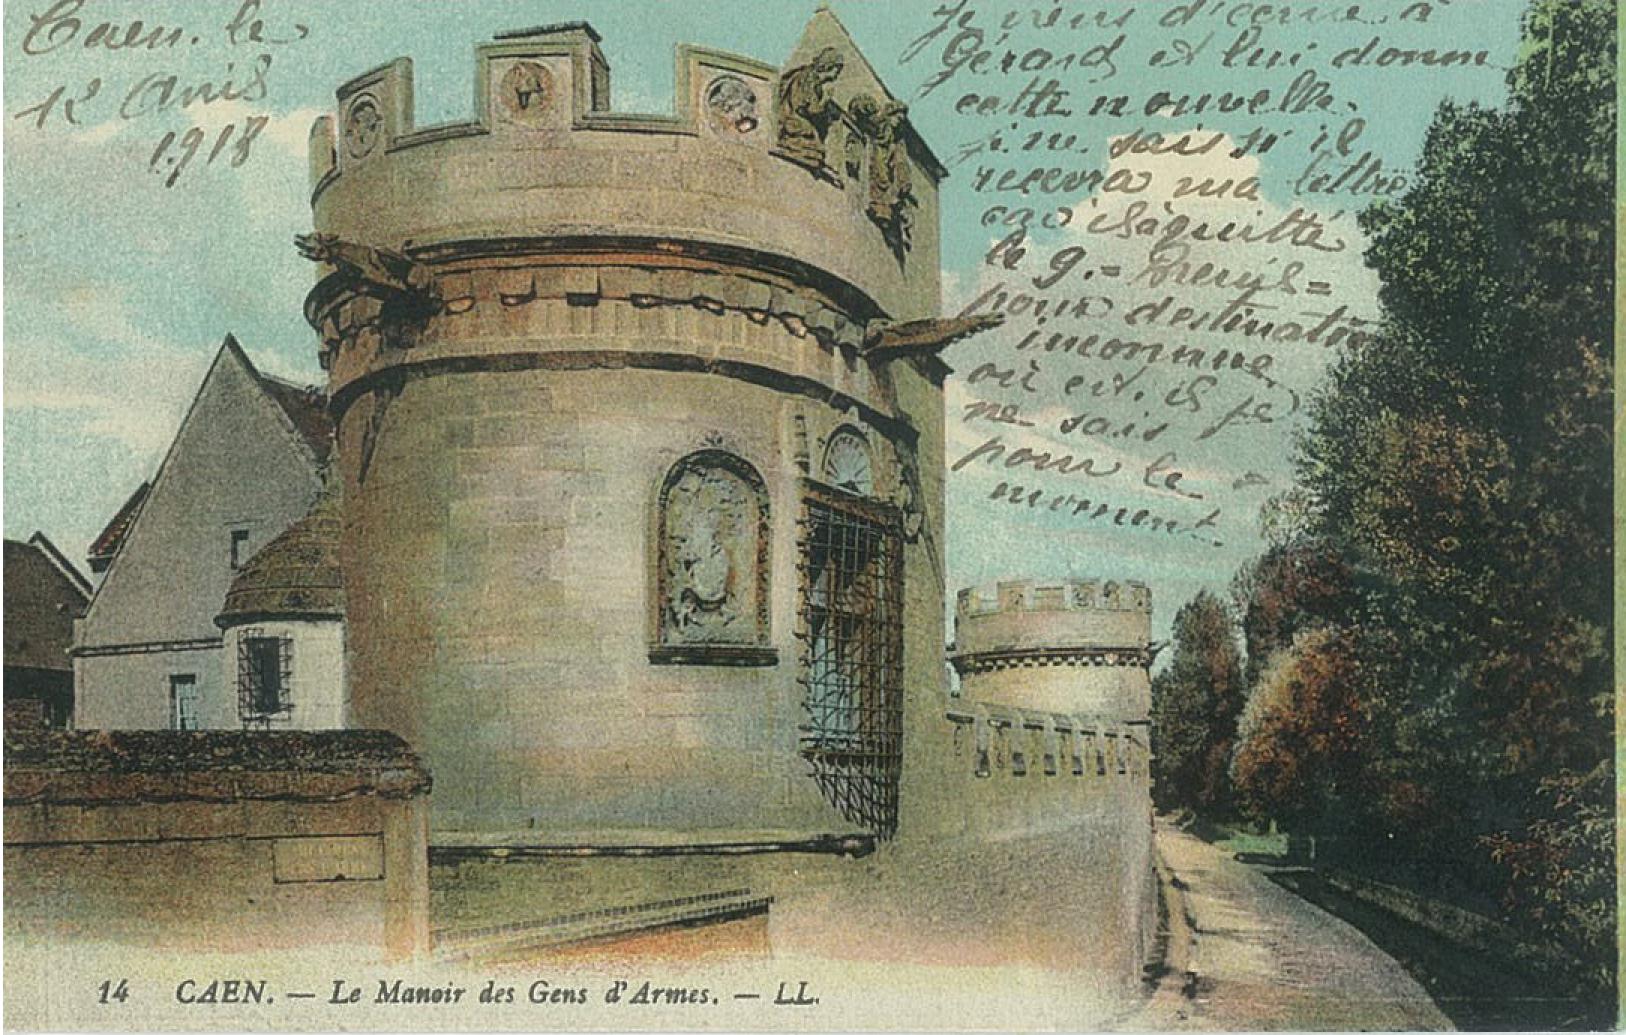 Caen. le
12 Avril
1918
Je viens d'ecrire à
Gérard et lui donne
cette nouvelle.
je ne sais si il
recevra ma lettre
car il a quitté
le 9. = Breuil =
pour destination
inconnue
où est. il je
ne sais
pour le
moment.
14 CAEN. — Le Manoir des Gens d'Armes. — LL.